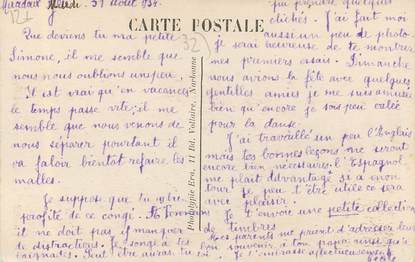 31 Août 1934.
CARTE POSTALE
Que deviens tu ma petite
Simone, il me semble que
nous nous oublions un peu.
Il est vrai qu'en vacances
le temps passe vite; il me
semble que nous venons de
nous séparer pourtant il
va faloir bientôt refaire les
malles.
Je suppose que tu
profité de ce congé.
il ne doit pas il manquer
de distractions. Je songe à tes
baignades. Peut être auras tu
Phototypie Era, 11 Bd. Voltaire, Narbonne
pu prendre quelques
clichés. J'ai fait moi
aussi un peu de photo
je serai heureuse de te montrer
mes premiers essais. Dimanche
nous avions la fête avec quelques
gentilles amies je me suis amusée
bien qu'encore je sois peu calée
pour la danse.
J'ai travaillé un peu l'Anglais
mais tes bonnes leçons me seront
encore bien nécessaires. L'Espagnol
me plait davantage si à mon
tour je peux t'être utile ce sera
avec plaisir.
Je t'envoie une petite collection
de timbres
Mes parents me prient d'adresser leur
bon souvenir à ton papa ainsi qu'à
Je t'embrasse affectueusement